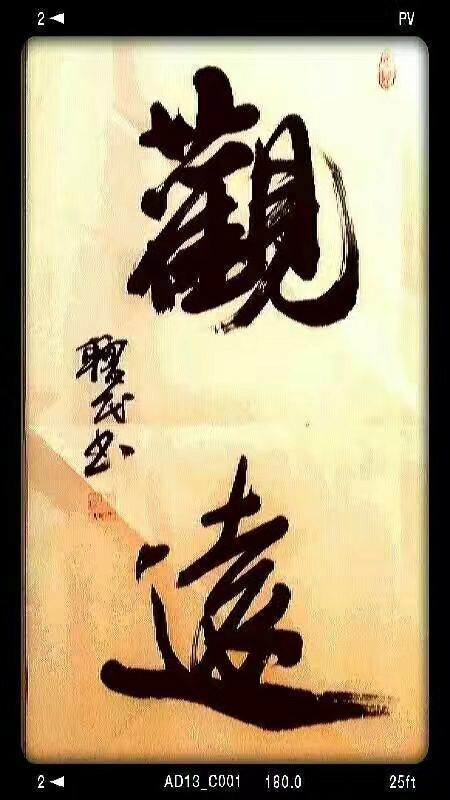 2 ◄ PV
觀遠
民书
2 ◄ AD13_C001 180.0 25ft